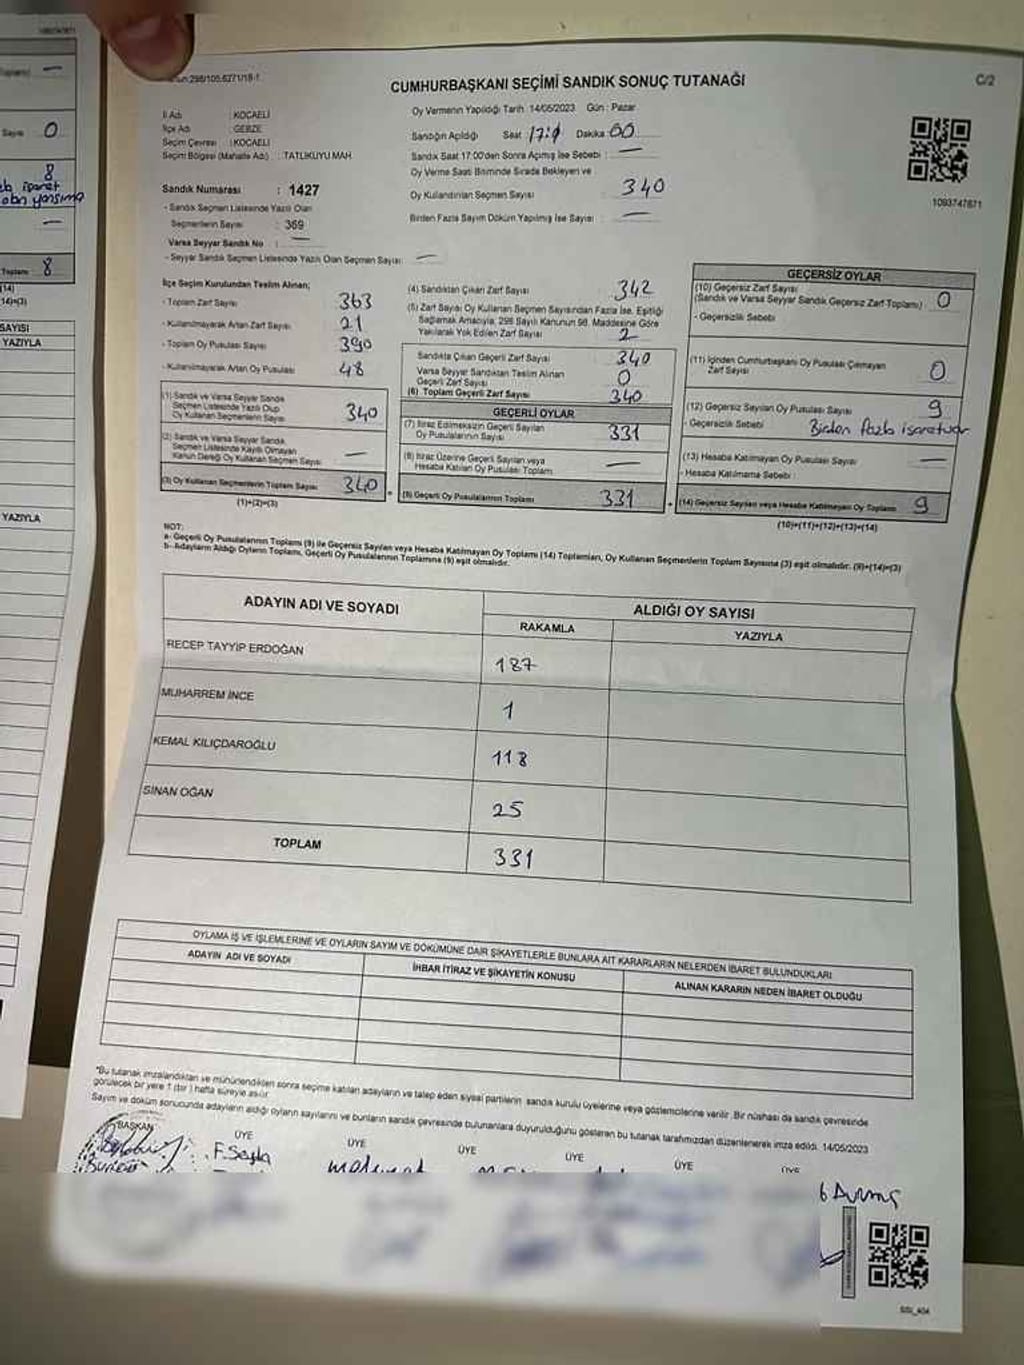 1093747871
Sayısı 0
8
işaret
Toplamı 8
(14)
(14)=(3)
SAYISI
YAZIYLA
YAZIYLA
298/105.6271/18-1
C/2
CUMHURBAŞKANI SEÇİMİ SANDIK SONUÇ TUTANAĞI
Oy Vermenin Yapıldığı Tarih :14/05/2023 Gün : Pazar
İl Adı : KOCAELİ
İlçe Adı : GEBZE
Seçim Çevresi : KOCAELİ
Seçim Bölgesi (Mahalle Adı) : TATLIKUYU MAH
Sandık Numarası : 1427
- Sandık Seçmen Listesinde Yazılı Olan
Seçmenlerin Sayısı : 369
Varsa Seyyar Sandık No : —
- Seyyar Sandık Seçmen Listesinde Yazılı Olan Seçmen Sayısı : —
Sandığın Açıldığı Saat Dakika 00
Sandık Saat 17:00'den Sonra Açılmış İse Sebebi : —
Oy Verme Saati Bitiminde Sırada Bekleyen ve
Oy Kullandırılan Seçmen Sayısı : 340
Birden Fazla Sayım Döküm Yapılmış İse Sayısı : —
1093747871
İlçe Seçim Kurulundan Teslim Alınan;
- Toplam Zarf Sayısı : 363
- Kullanılmayarak Artan Zarf Sayısı : 21
- Toplam Oy Pusulası Sayısı : 390
- Kullanılmayarak Artan Oy Pusulası : 48
(1) Sandık ve Varsa Seyyar Sandık
Seçmen Listesinde Yazılı Olup
Oy Kullanan Seçmenlerin Sayısı 340
(2) Sandık ve Varsa Seyyar Sandık
Seçmen Listesinde Kayıtlı Olmayan
Kanun Gereği Oy Kullanan Seçmen Sayısı —
(3) Oy Kullanan Seçmenlerin Toplam Sayısı 340
(1)+(2)=(3)
(4) Sandıktan Çıkan Zarf Sayısı : 342
(5) Zarf Sayısı Oy Kullanan Seçmen Sayısından Fazla İse, Eşitliği
Sağlamak Amacıyla, 298 Sayılı Kanunun 98. Maddesine Göre
Yakılarak Yok Edilen Zarf Sayısı : 2
Sandıkta Çıkan Geçerli Zarf Sayısı 340
Varsa Seyyar Sandıktan Teslim Alınan
Geçerli Zarf Sayısı 0
(6) Toplam Geçerli Zarf Sayısı 340
GEÇERLİ OYLAR
(7) İtiraz Edilmeksizin Geçerli Sayılan
Oy Pusulalarının Sayısı 331
(8) İtiraz Üzerine Geçerli Sayılan veya
Hesaba Katılan Oy Pusulası Toplamı —
(9) Geçerli Oy Pusulalarının Toplamı 331
GEÇERSİZ OYLAR
(10) Geçersiz Zarf Sayısı
(Sandık ve Varsa Seyyar Sandık Geçersiz Zarf Toplamı) : 0
- Geçersizlik Sebebi :
(11) İçinden Cumhurbaşkanı Oy Pusulası Çıkmayan
Zarf Sayısı 0
(12) Geçersiz Sayılan Oy Pusulası Sayısı 9
- Geçersizlik Sebebi Birden fazla
(13) Hesaba Katılmayan Oy Pusulası Sayısı —
- Hesaba Katılmama Sebebi :
(14) Geçersiz Sayılan veya Hesaba Katılmayan Oy Toplamı 9
(10)+(11)+(12)+(13)=(14)
NOT:
a- Geçerli Oy Pusulalarının Toplamı (9) ile Geçersiz Sayılan veya Hesaba Katılmayan Oy Toplamı (14) Toplamları, Oy Kullanan Seçmenlerin Toplam Sayısına (3) eşit olmalıdır. (9)+(14)=(3)
b- Adayların Aldığı Oyların Toplamı, Geçerli Oy Pusulalarının Toplamına (9) eşit olmalıdır.
ADAYIN ADI VE SOYADI ALDIĞI OY SAYISI
RAKAMLA YAZIYLA
RECEP TAYYİP ERDOĞAN 187
MUHARREM İNCE 1
KEMAL KILIÇDAROĞLU 118
SİNAN OĞAN 25
TOPLAM 331
OYLAMA İŞ VE İŞLEMLERİNE VE OYLARIN SAYIM VE DÖKÜMÜNE DAİR ŞİKAYETLERLE BUNLARA AİT KARARLARIN NELERDEN İBARET BULUNDUKLARI
ADAYIN ADI VE SOYADI İHBAR İTİRAZ VE ŞİKAYETİN KONUSU ALINAN KARARIN NEDEN İBARET OLDUĞU
*Bu tutanak imzalandıktan ve mühürlendikten sonra seçime katılan adayların ve talep eden siyasi partilerin sandık kurulu üyelerine veya gözlemcilerine verilir. Bir nüshası da sandık çevresinde
görülecek bir yere 1 (bir) hafta süreyle asılır.
Sayım ve döküm sonucunda adayların aldığı oyların sayılarını ve bunların sandık çevresinde bulunanlara duyurulduğunu gösteren bu tutanak tarafımızdan düzenlenerek imza edildi. 14/05/2023
BAŞKAN ÜYE ÜYE ÜYE ÜYE ÜYE ÜYE
SSI_404